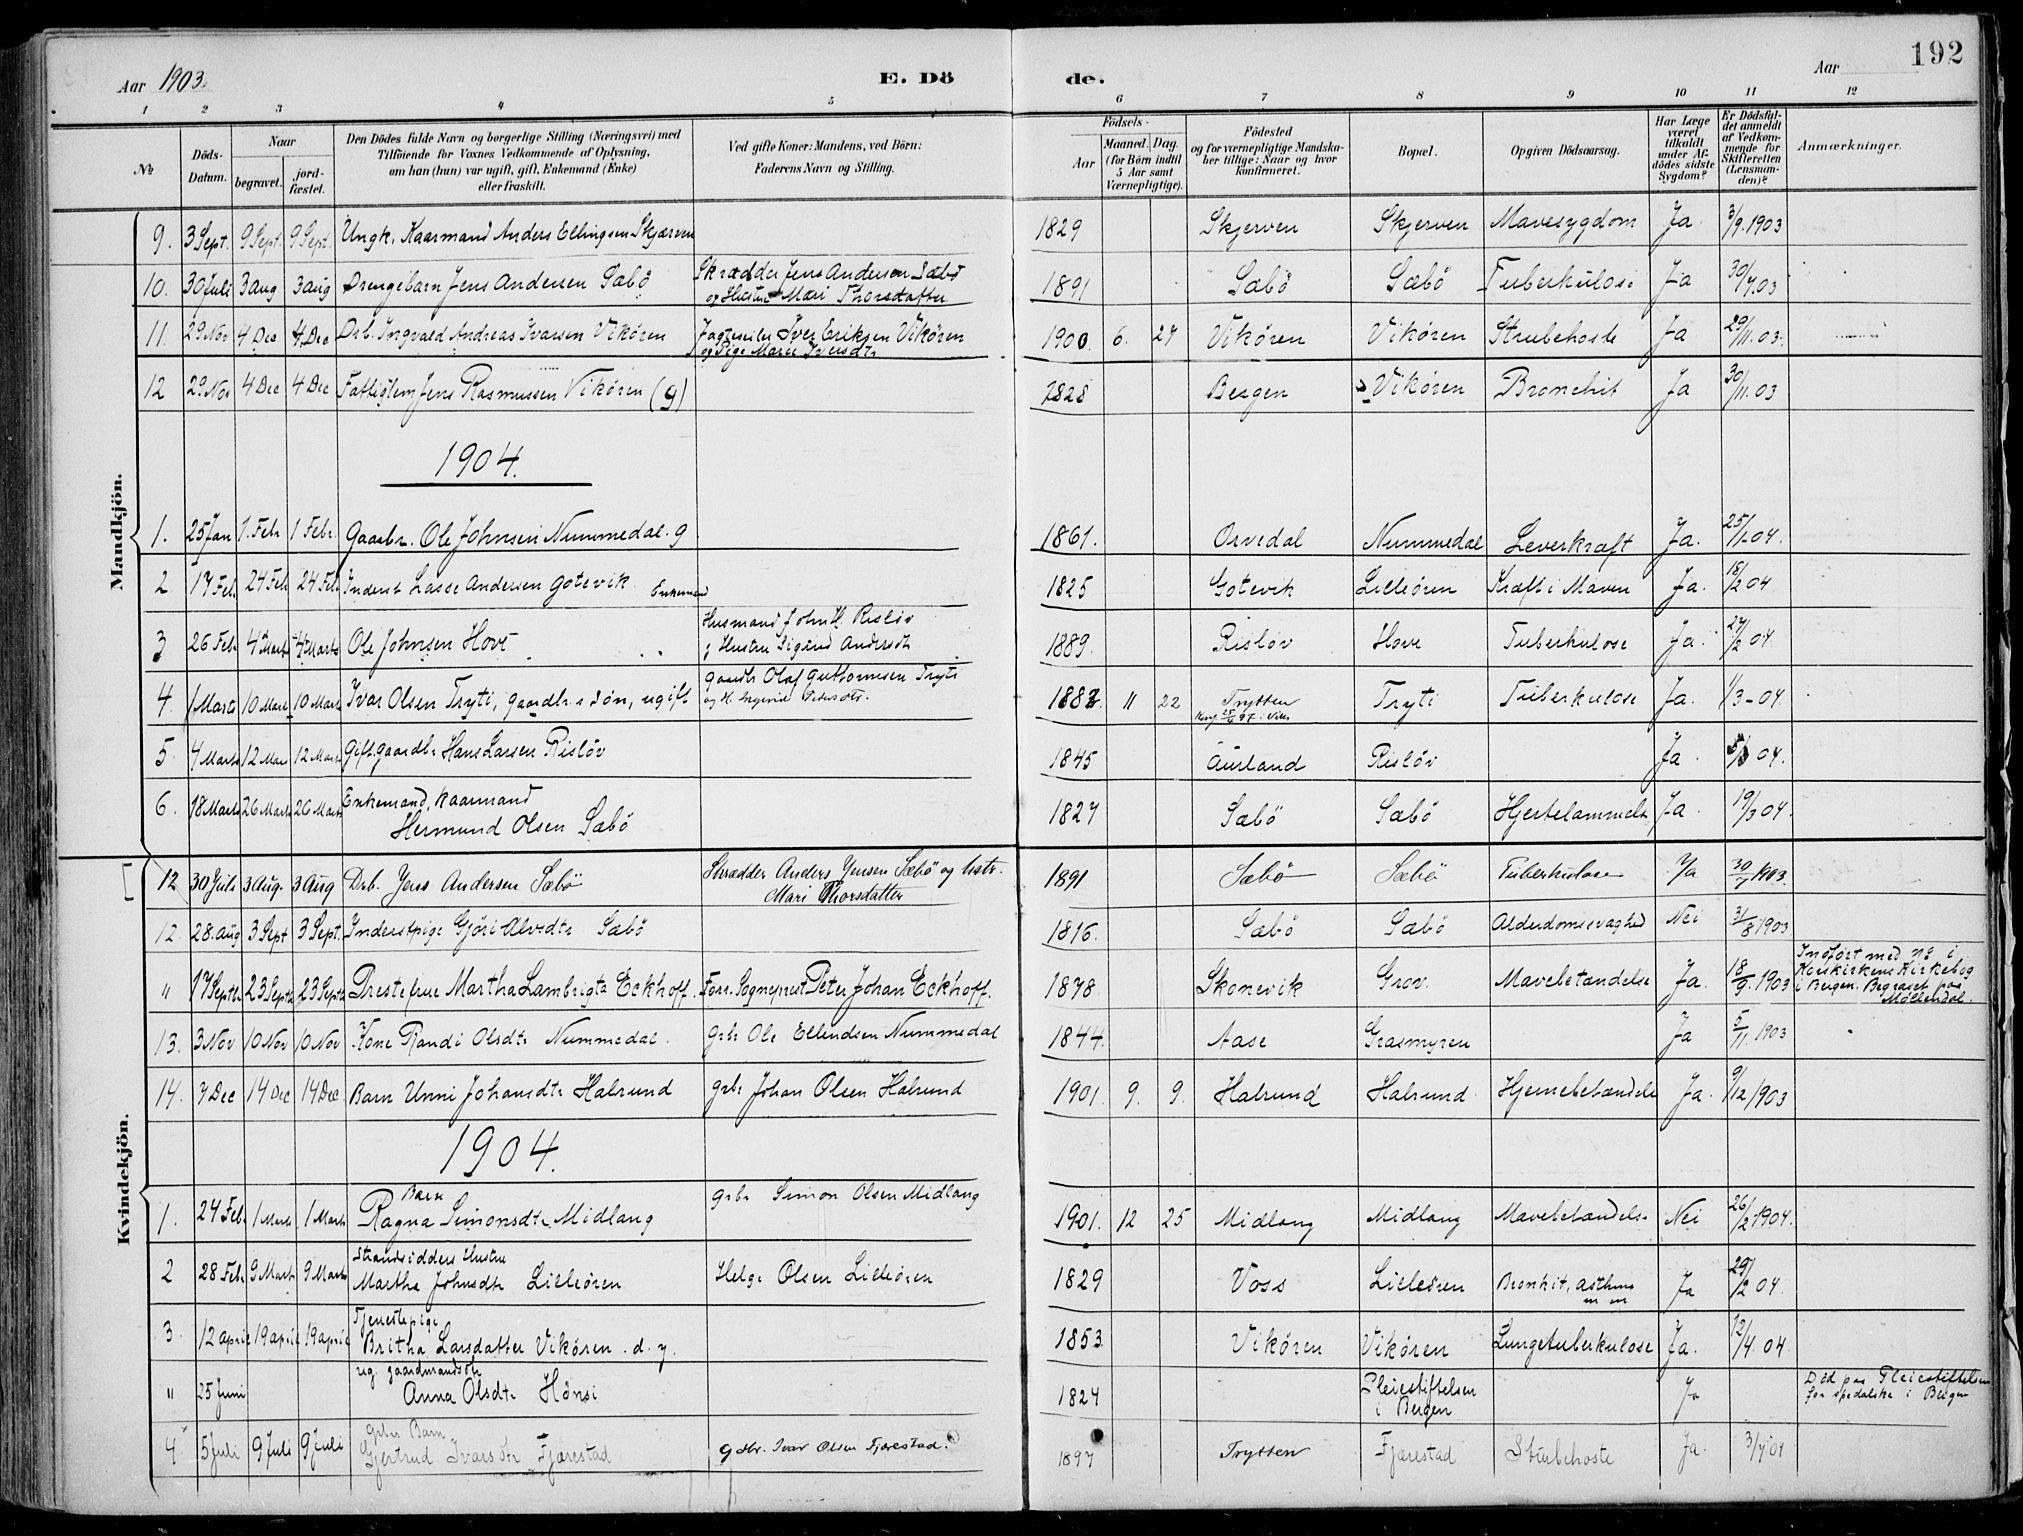 192
Aar 1903. E. Dö de. Aar
1 2 3 4 5 6 7 8 9 10 11 12
№ Döds-Datum. Naar begravet. jordfæstet. Den Dödes fulde Navn og borgerlige Stilling (Næringsvei) med Tilföiende for Voxnes Vedkommende af Oplysning, om han (hun) var ugift, gift, Enkemand (Enke) eller fraskilt. Ved gifte Koner: Mandens, ved Börn: Faderens Navn og Stilling. Födsels- Aar Maaned. Dag. (for Börn indtil 5 Aar samt Værnepligtige). Födested og for værnepligtige Mandskaber tillige: Naar og hvor konfirmeret. Bopæl. Opgiven Dödsaarsag. Har Læge været tilkaldt under Afdödes sidste Sygdom? Er Dödsfaldet anmeldt af Vedkommende for Skifteretten (Lensmanden)? Anmærkninger.
Mandkjön.
9. 3 Sept. 9 Sept. 9 Sept. Ungk. Kaarmand Anders Ellingsen Skjærven 1829 Skjerven Skjerven Mavesygdom Ja 3/9.1903
10. 30 Juli 3 aug 3 aug Drengebarn Jens Andersen Sæbö Skrædder Jens Andersen Sæbö og Hustru Mari Thorsdatter 1891 Sæbö Sæbö Tuberkulose Ja 30/7.03
11. 29 Nov 4 Dec 4 Dec Drb. Ingvald Andreas Ivarsen Vikören Iver Eriksen Vikören og Pige Marie Iversdtr 1900 6. 27 Vikören Vikören Strubehoste Ja 29/11.03.
12 29 Nov 4 Dec 4 Dec Fattiglem Jens Rasmussen Vikören (g) 1828 Bergen Vikören Bronchit Ja 30/11.03
1904.
1. 25 Jan 1. Febr 1 Febr. Gaarbr. Ole Johnsen Nummedal. g 1861. Orvedal Nummedal Leverkræft Ja. 25/1.04.
2 17 Feb. 24 Feb 24 Feb Inderst Lasse Andersen Gotevik. Enkemand 1825 Gotevik Lilleören Kræft i Maven Ja. 18/2 04
3 26 Feb. 4 Marts 4 Marts Ole Johnsen Hove Husmand John H. Rislöv og Hustru Sigrid Andersdt 1889. Rislöv Hove Tuberkulose Ja. 27/2 04
4. 1 Marts 10 Marts 10 Marts Ivar Olsen Tryti, gaardbrs Sön, ugift gaardbr Olaf Guttormsen Tryti og H. 1882. 11 22 Trytten Konf 97. Tryti Tuberkulose Ja. 1/3-04.
5. 4 Marts 12 Marts 12 Marts Gift.gaardbr Hans Larsen Rislöv 1845 Aurland Rislöv Ja. 5/3 04.
6. 18 Marts 26 Marts 26 Marts Enkemand, Kaarmand Hermund Olsen Sæbö 1827 Sæbö Sæbö Hjertelammelse Ja. 19/3 04.
Kvindekjön.
12 30 Juli 3 Aug. 3 Aug Drb. Jens Andersen Sæbö Skrædder Anders Jensen Sæbö og hstr. Mari Thorsdatter 1891 Sæbö Sæbö Tuberkulose Ja 30/7 1903.
12 28. aug 3 Sept 3 Sept. Inderstpige Gjöri Alvsdtr Sæbö 1816. Sæbö Sæbö Alderdomssvaghed Nei 31/8 1903
" 17 Septb 23 Septb 23 Septb Prestefrue Martha Lambrigta Eckhoff. Forr. Sogneprest Peter Johan Eckhoff. 1878. Skonevik Grov. Mavebetændelse Ja. 18/9. 1903 Indfört med № i Korskirkens Kirkebog i Bergen. Begravet paa Möllendal.
13. 3 Nov 10 Nov 10 Nov Kone Randi Olsdtr Nummedal. Gbr Ole Ellendsen Nummedal 1844. Aase Grasmyren Ja 5/11. 1903
14. 7 Dec 14 Dec 14 Dec Barn Unni Johansdtr Halsund gbr Johan Olsen Halsund 1901. 9. 9. Halsund Halsund. Hjernebetændelse Ja. 9/12 1903
1904.
1. 24 Feb. 1 Marts 1 Marts Barn Ragna Simonsdtr Midlang gbr Simon Olsen Midlang 1901. 12 25 Midlang Midlang Mavebetændelse Nei 26/2 1904.
2 28 Feb 9 Marts 9 Marts Strandsidders Hustru Martha Johnsdtr Lilleören Helge Olsen Lilleören 1829 Voss Lilleören Bronkit, asthma m m Ja 29/2 04.
3 12 april 19 april 19 april Tjenestepige Britha Larsdatter Vikören. d. y. 1853. Vikören Vikören Lungetuberkulose Ja. 12/4.04.
" 25 Juni ug. gaardmandsdtr Anna Olsdtr Hönsi 1824 Pleiestiftelsen i Bergen Ja Död paa Pleiestiftelsen for spedalske i Bergen
4 5 Juli 9 Juli 9 Juli gbr Barn Gjertrud Ivarsdtr Fjærestad gdbr. Ivar Olsen Fjærestad. 1897 Trytten Fjærestad Strubehoste Ja. 3/7 04